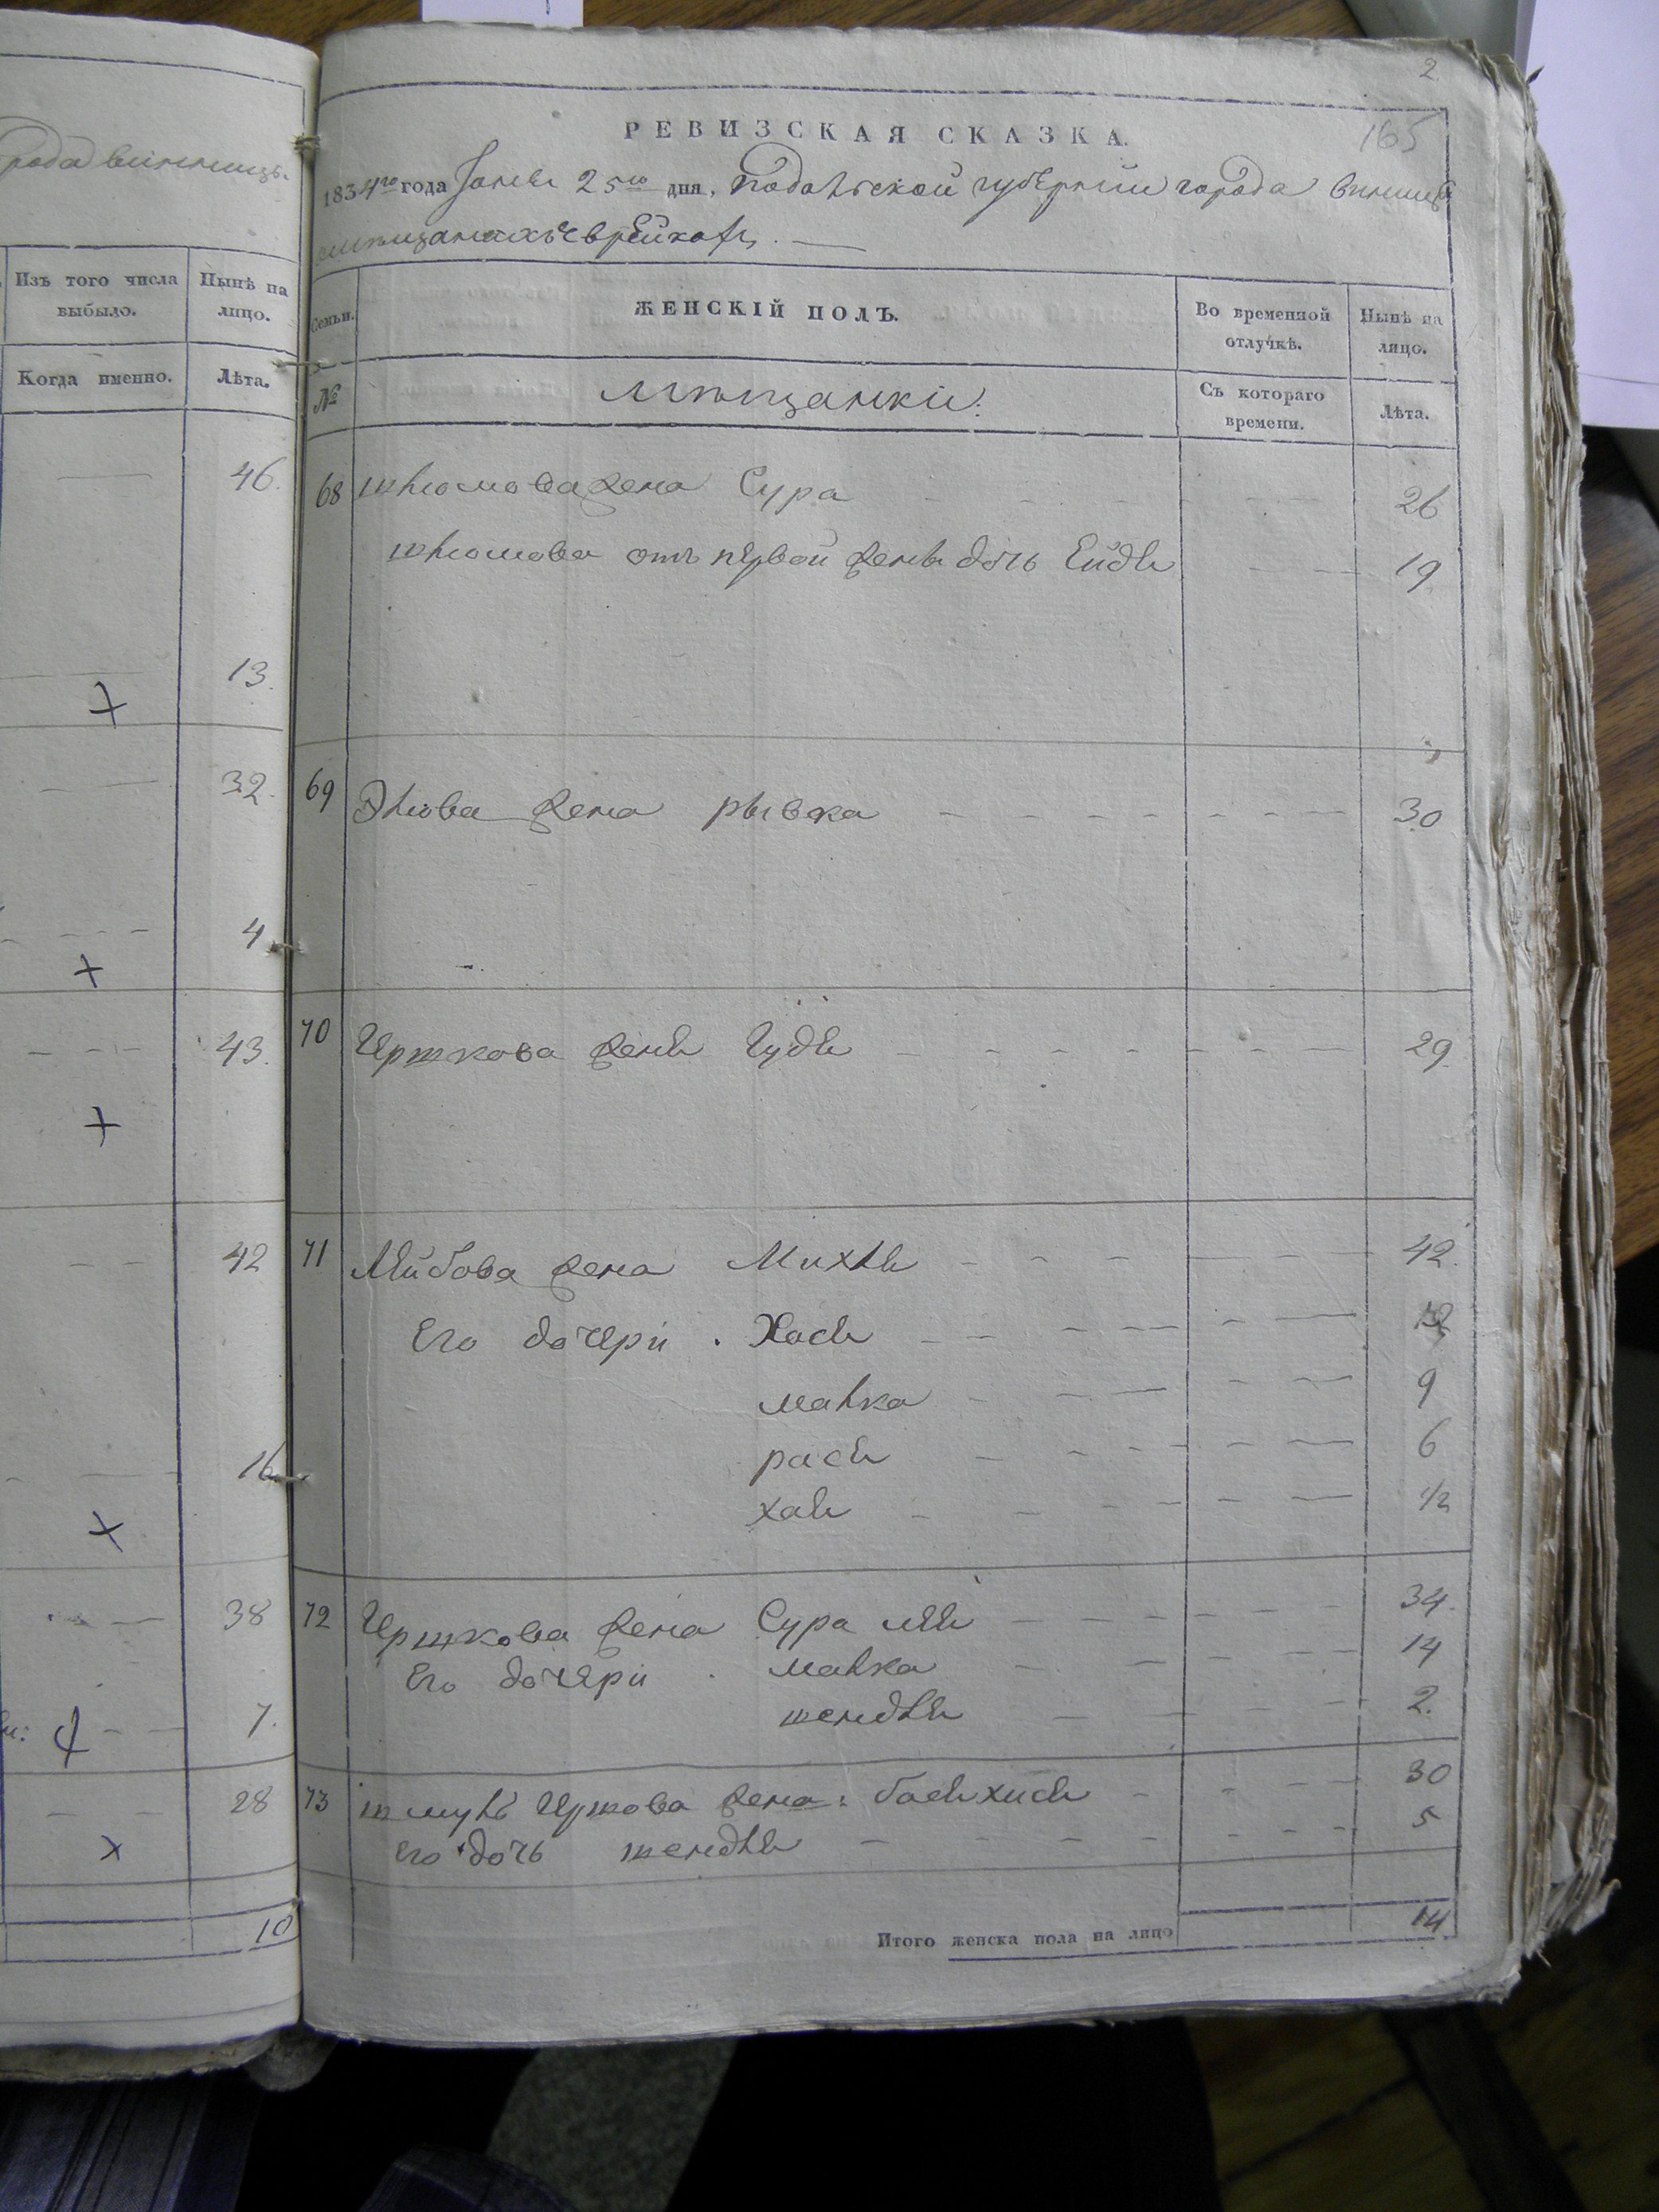 рода винницы.
Изъ того числа выбыло.
Нынѣ на лицо.
Когда именно.
Лѣта.
46.
13.
32.
4
43.
42
16
38
7.
28
10
2
165
РЕВИЗСКАЯ СКАЗКА.
1834го года 25го дня, Подольской губерніи города винницы
мѣщанахъ евреихъ.
Семьи.
ЖЕНСКІЙ ПОЛЪ.
Во временной отлучкѣ.
Нынѣ на лицо.
№
Мѣщанки:
Съ котораго времени.
Лѣта.
68 шлиомова жена Сура 26
шлиомова отъ первой жены дочь Ейдя 19
69 жена рывка 30
70 Гершкова жена Гудя 29
71 Лейбова жена Михля 42.
Его дочери. Хася
малка 9
рася 6
хая 1/2
72 Гершкова жена Сура лея 34.
Его дочери. малка 14
шендля 2.
73 шмуль Гершкова жена: басяхися 30
его дочь шендля 5
Итого женска пола на лицо 14